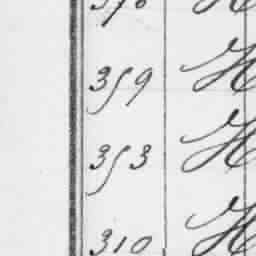 359 H
353 H
310 H